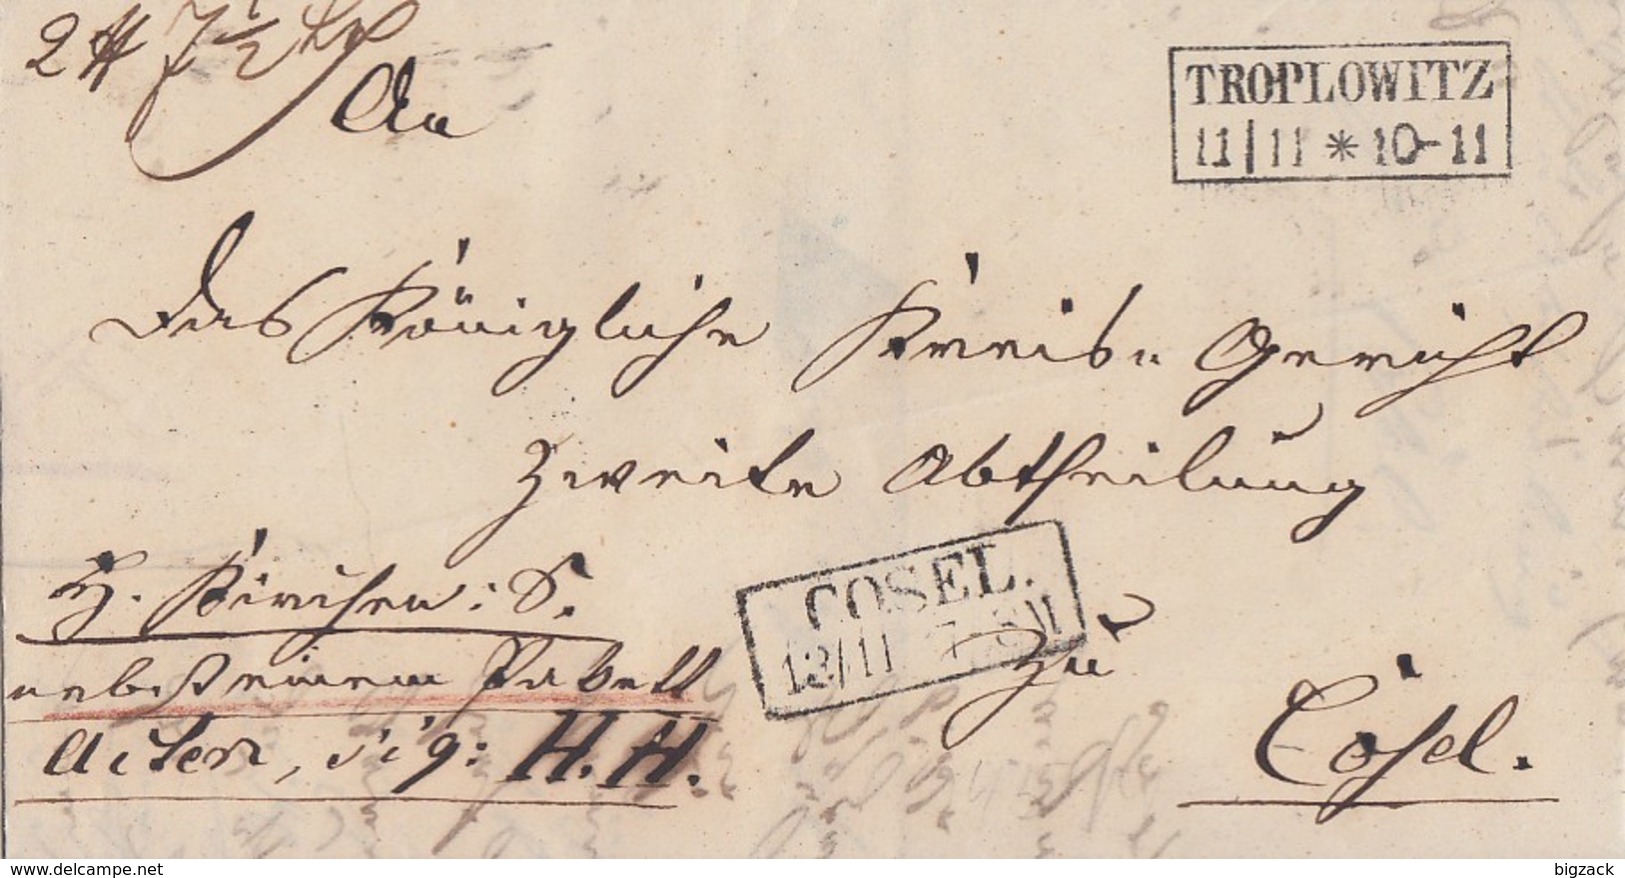 2 ℔ 7 1/2 Lth
An
TROPLOWITZ
11|11 * 10-11
Das Königliche Kreis- Gericht
Zweite Abtheilung
H. Kirchen: S.
nebst einem Paket
Acten, sig: H. H.
COSEL.
13/11 7
zu
Cosel.
www.delcampe.net
bigzack